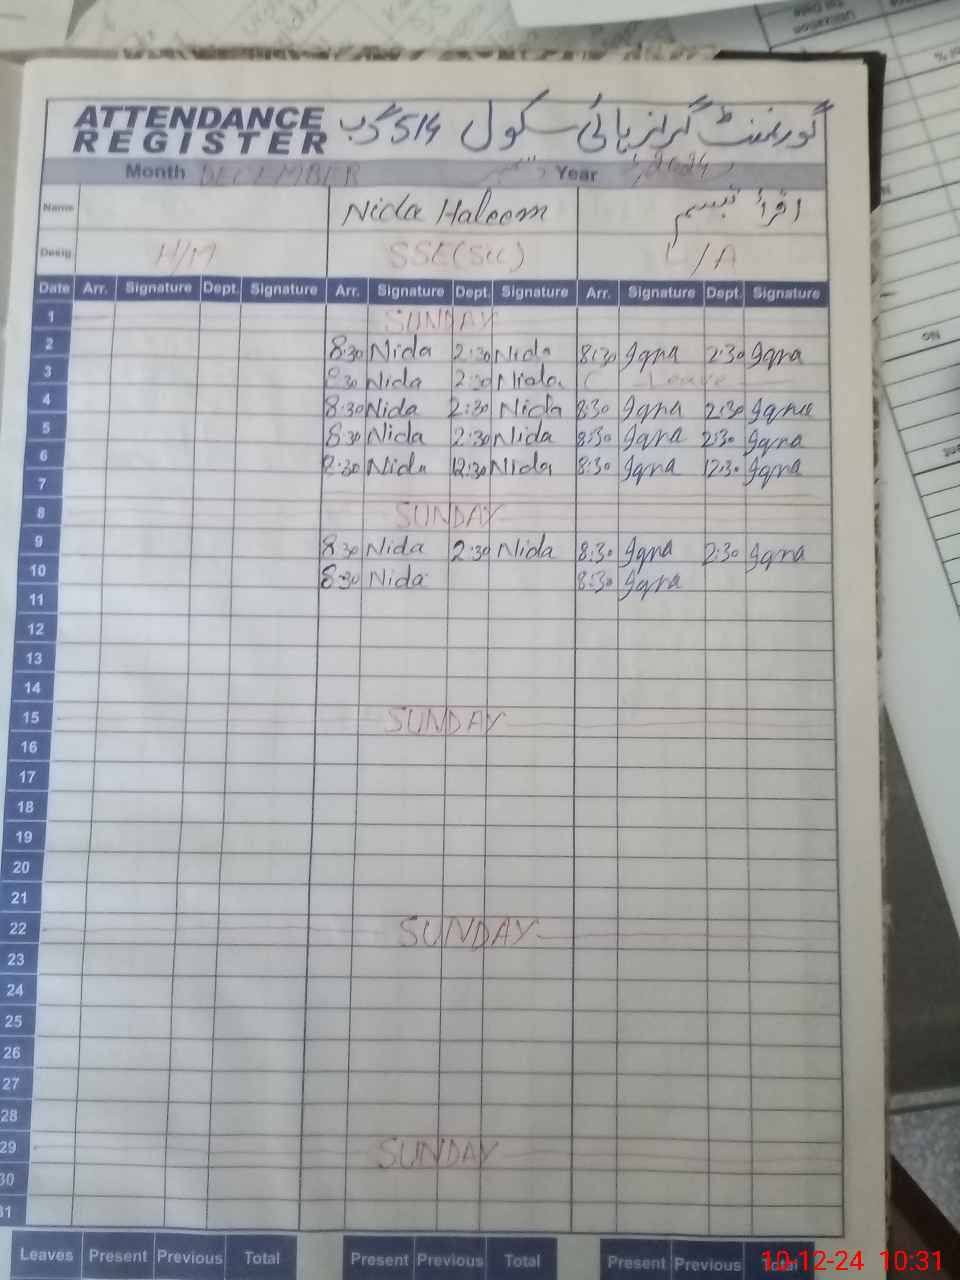 ATTENDANCE REGISTER گورنمنٹ گرلز ہائی سکول 514 گ ب
Month DECEMBER دسمبر Year 2024
Name Nida Haleem اقراء تبسم
Desig. H/M SSE(Sci) L/A
Date Arr. Signature Dept. Signature Arr. Signature Dept. Signature Arr. Signature Dept. Signature
1 SUNDAY
2 8:30 Nida 2:30 Nida 8:30 Iqra 2:30 Iqra
3 8:30 Nida 2:30 Nida Leave
4 8:30 Nida 2:30 Nida 8:30 Iqra 2:30 Iqra
5 8:30 Nida 2:30 Nida 8:30 Iqra 2:30 Iqra
6 8:30 Nida 12:30 Nida 8:30 Iqra 12:30 Iqra
7
8 SUNDAY
9 8:30 Nida 2:30 Nida 8:30 Iqra 2:30 Iqra
10 8:30 Nida 8:30 Iqra
11
12
13
14
15 SUNDAY
16
17
18
19
20
21
22 SUNDAY
23
24
25
26
27
28
29 SUNDAY
30
31
Leaves Present Previous Total Present Previous Total Present Previous Total
10-12-24 10:31